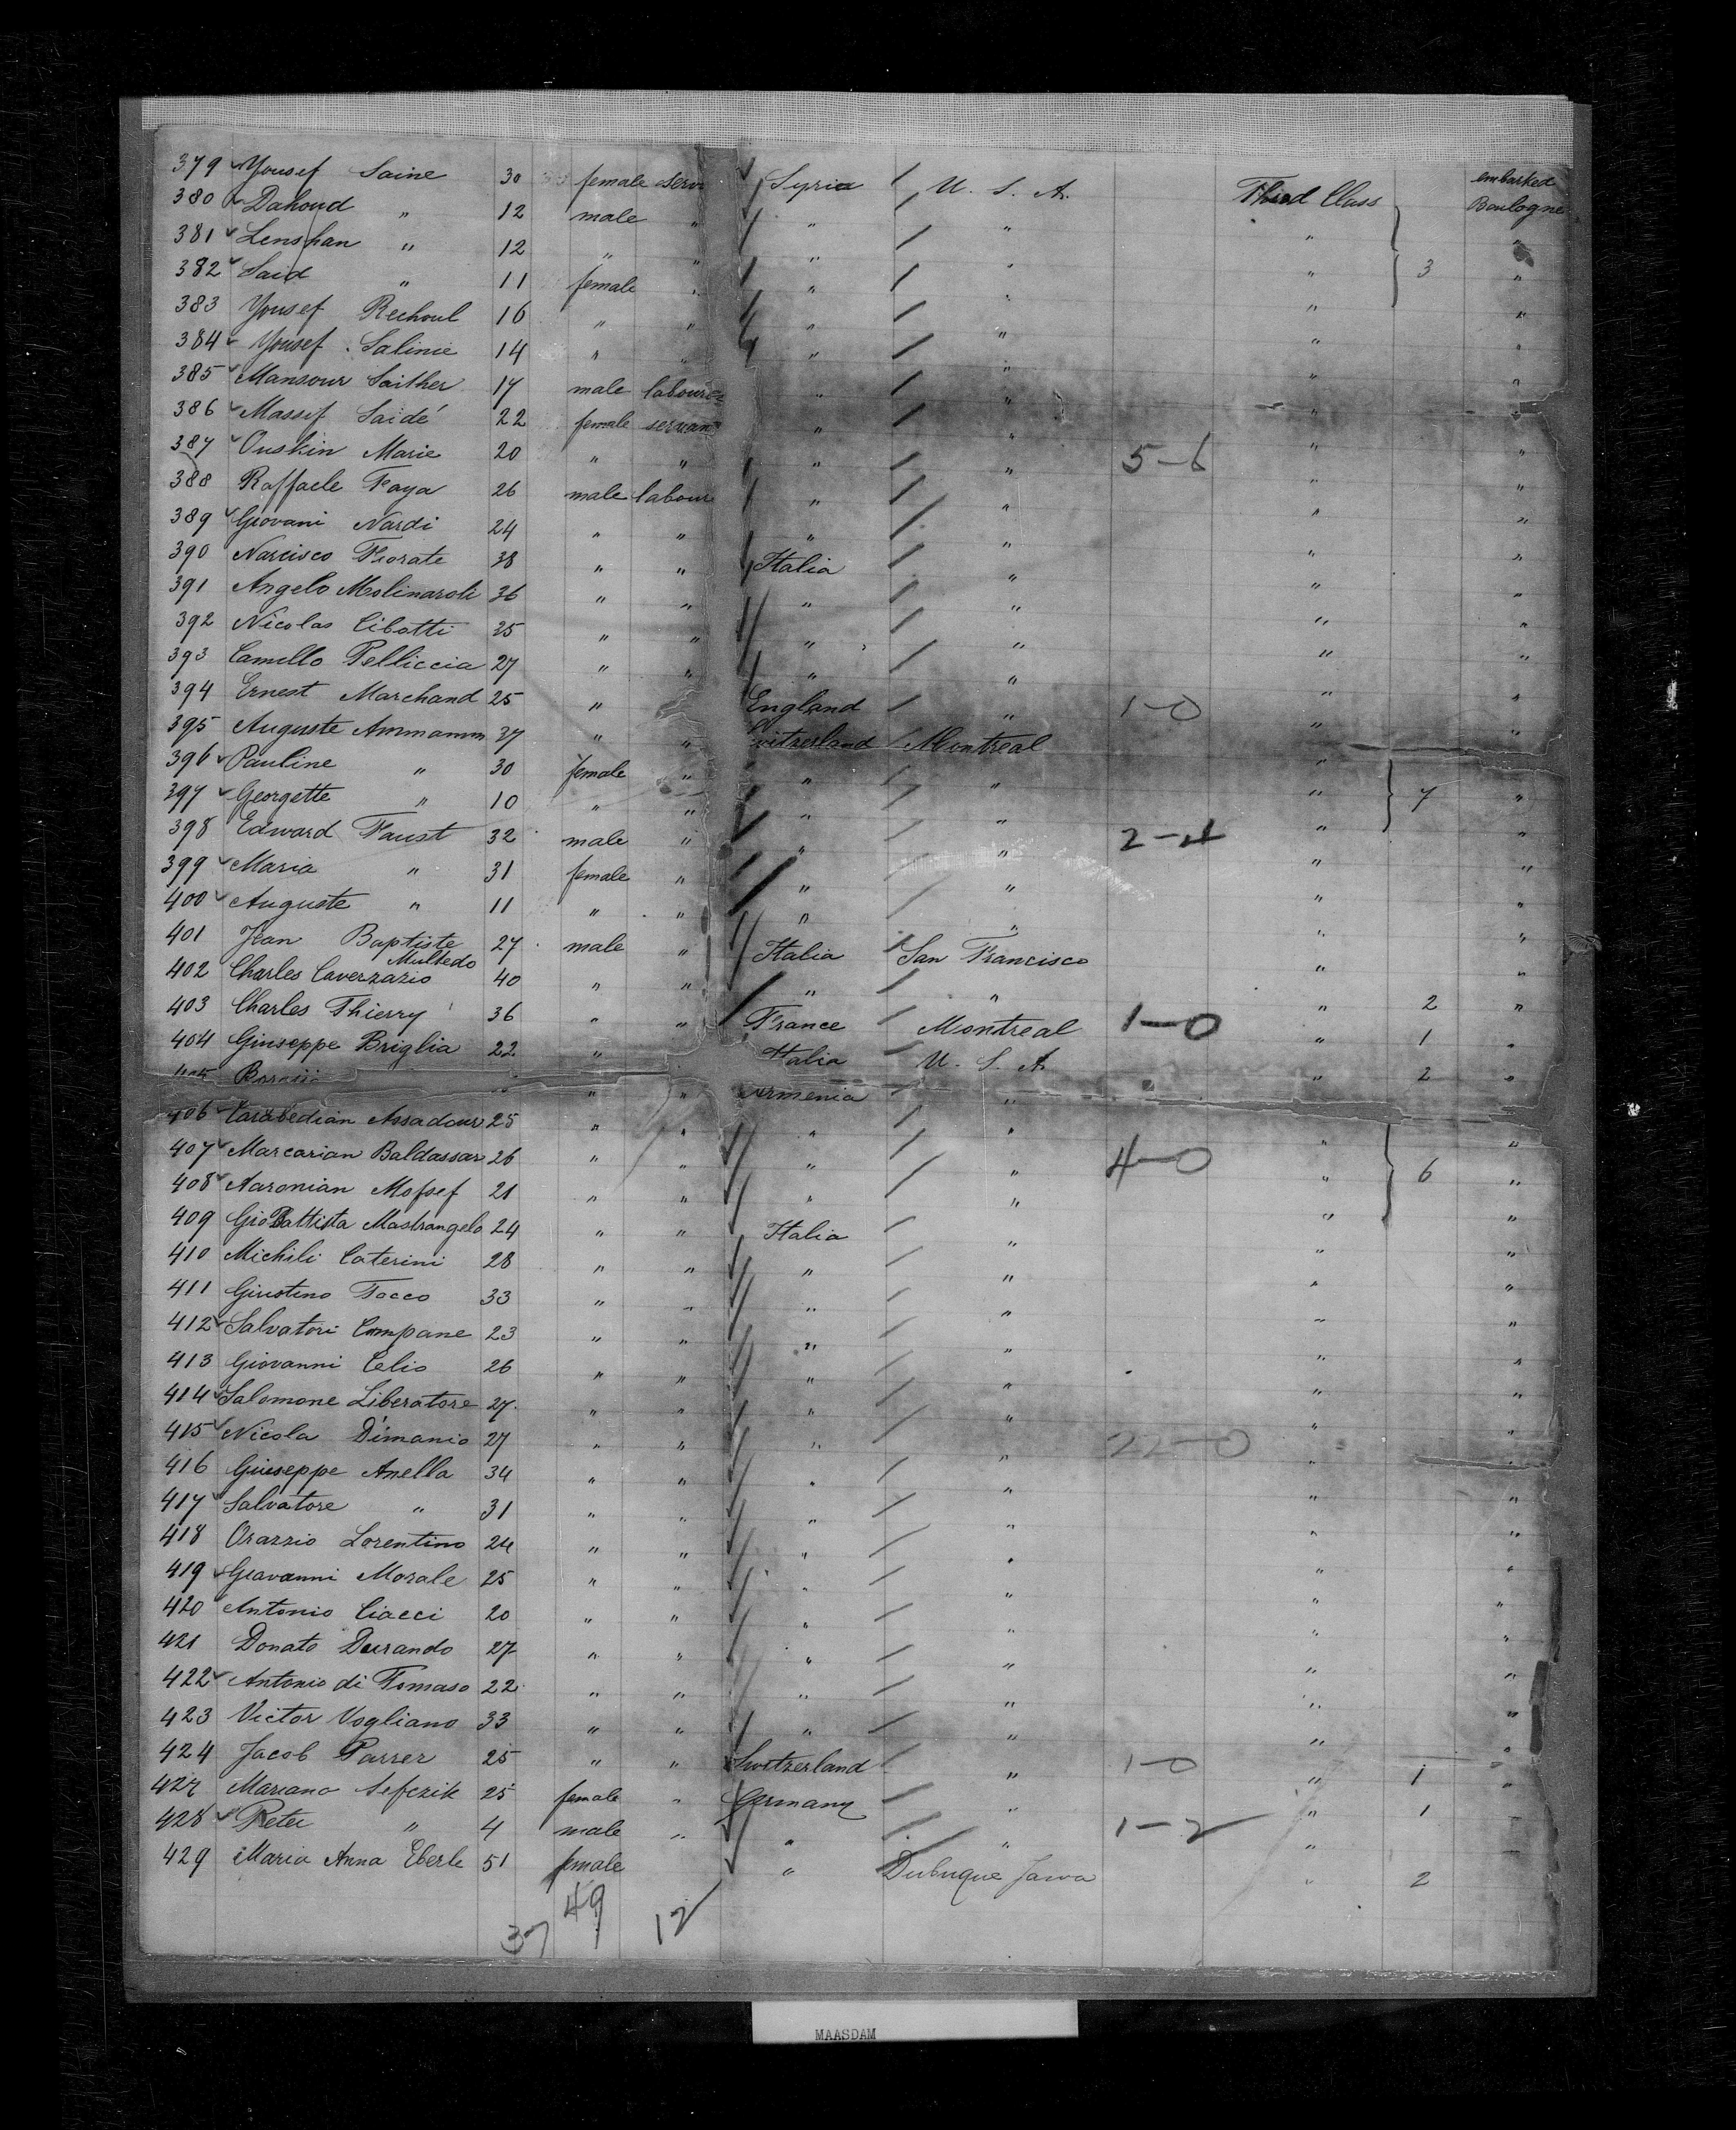 379 Yousef Saine 30 female serv Syria / U. S. A. Third Class embarked Boulogne
380 Dahoud " 12 male " " / " " "
381 Lenshan " 12 " " " / " " "
382 Said " 11 female " " / " " 3 "
383 Yousef Rechoul 16 " " " / " " "
384 Yousef Salinie 14 " " " / " " "
385 Mansour Saither 17 male labourer " / " " "
386 Massif Saidé 22 female servant " / " " "
387 Ouskin Marie 20 " " " / " 5-6 " "
388 Raffaele Faya 26 male labour " / " " "
389 Giovani Nardi 24 " " " / " " "
390 Narcisco Fiorate 38 " " Italia / " " "
391 Angelo Molinaroli 36 " " " / " " "
392 Nicolas Cibotti 25 " " " / " " "
393 Camello Pelliccia 27 " " " / " " "
394 Ernest Marchand 25 " England / " 1-0 " "
395 Auguste Ammamm 37 " " Switzerland / Montreal " "
396 Pauline " 30 female " " / " " "
397 Georgette " 10 " " " / " " 7 "
398 Edward Faust 32 male " " / " 2-4 " "
399 Maria " 31 female " " / " " "
400 Auguste " 11 " " " / " " "
401 Jean Baptiste Multedo 27 male " Italia / San Francisco " "
402 Charles Caverzazio 40 " " " / " " 2 "
403 Charles Thierry 36 " " France / Montreal 1-0 " 1 "
404 Giuseppe Briglia 22 " Italia / U. S. A. " 2 "
" " Armenia / "
406 Carabedian Assadour 25 " " " / " " "
407 Marcarian Baldassar 26 " " " / " 4-0 " 6 "
408 Aaronian Mofsef 21 " " " / " " "
409 Gio Battista Mastrangelo 24 " " Italia / " " "
410 Michili Caterini 28 " " " / " " "
411 Giustino Tocco 33 " " " / " " "
412 Salvatori Compane 23 " " " / " " "
413 Giovanni Celio 26 " " " / " " "
414 Salomone Liberatore 27 " " " / " " "
415 Nicola Dimanio 27 " " " / " 22-0 " "
416 Giuseppe Anella 34 " " " / " " "
417 Salvatore " 31 " " " / " " "
418 Orazzio Lorentino 24 " " " / " " "
419 Giavanni Morale 25 " " " / " " "
420 Antonio Ciacci 20 " " " / " " "
421 Donato Durando 27 " " " / " " "
422 Antonio di Tomaso 22 " " " / " " "
423 Victor Vogliano 33 " " " / " " "
424 Jacob Parrer 25 " " Switzerland / " 1-0 " 1 "
427 Mariana Sefczik 25 female " Germany / " " 1
428 Peter " 4 male " " / " 1-2 "
429 Maria Anna Eberle 51 female " / Dubuque Jawa " 2
37 49 12
MAASDAM